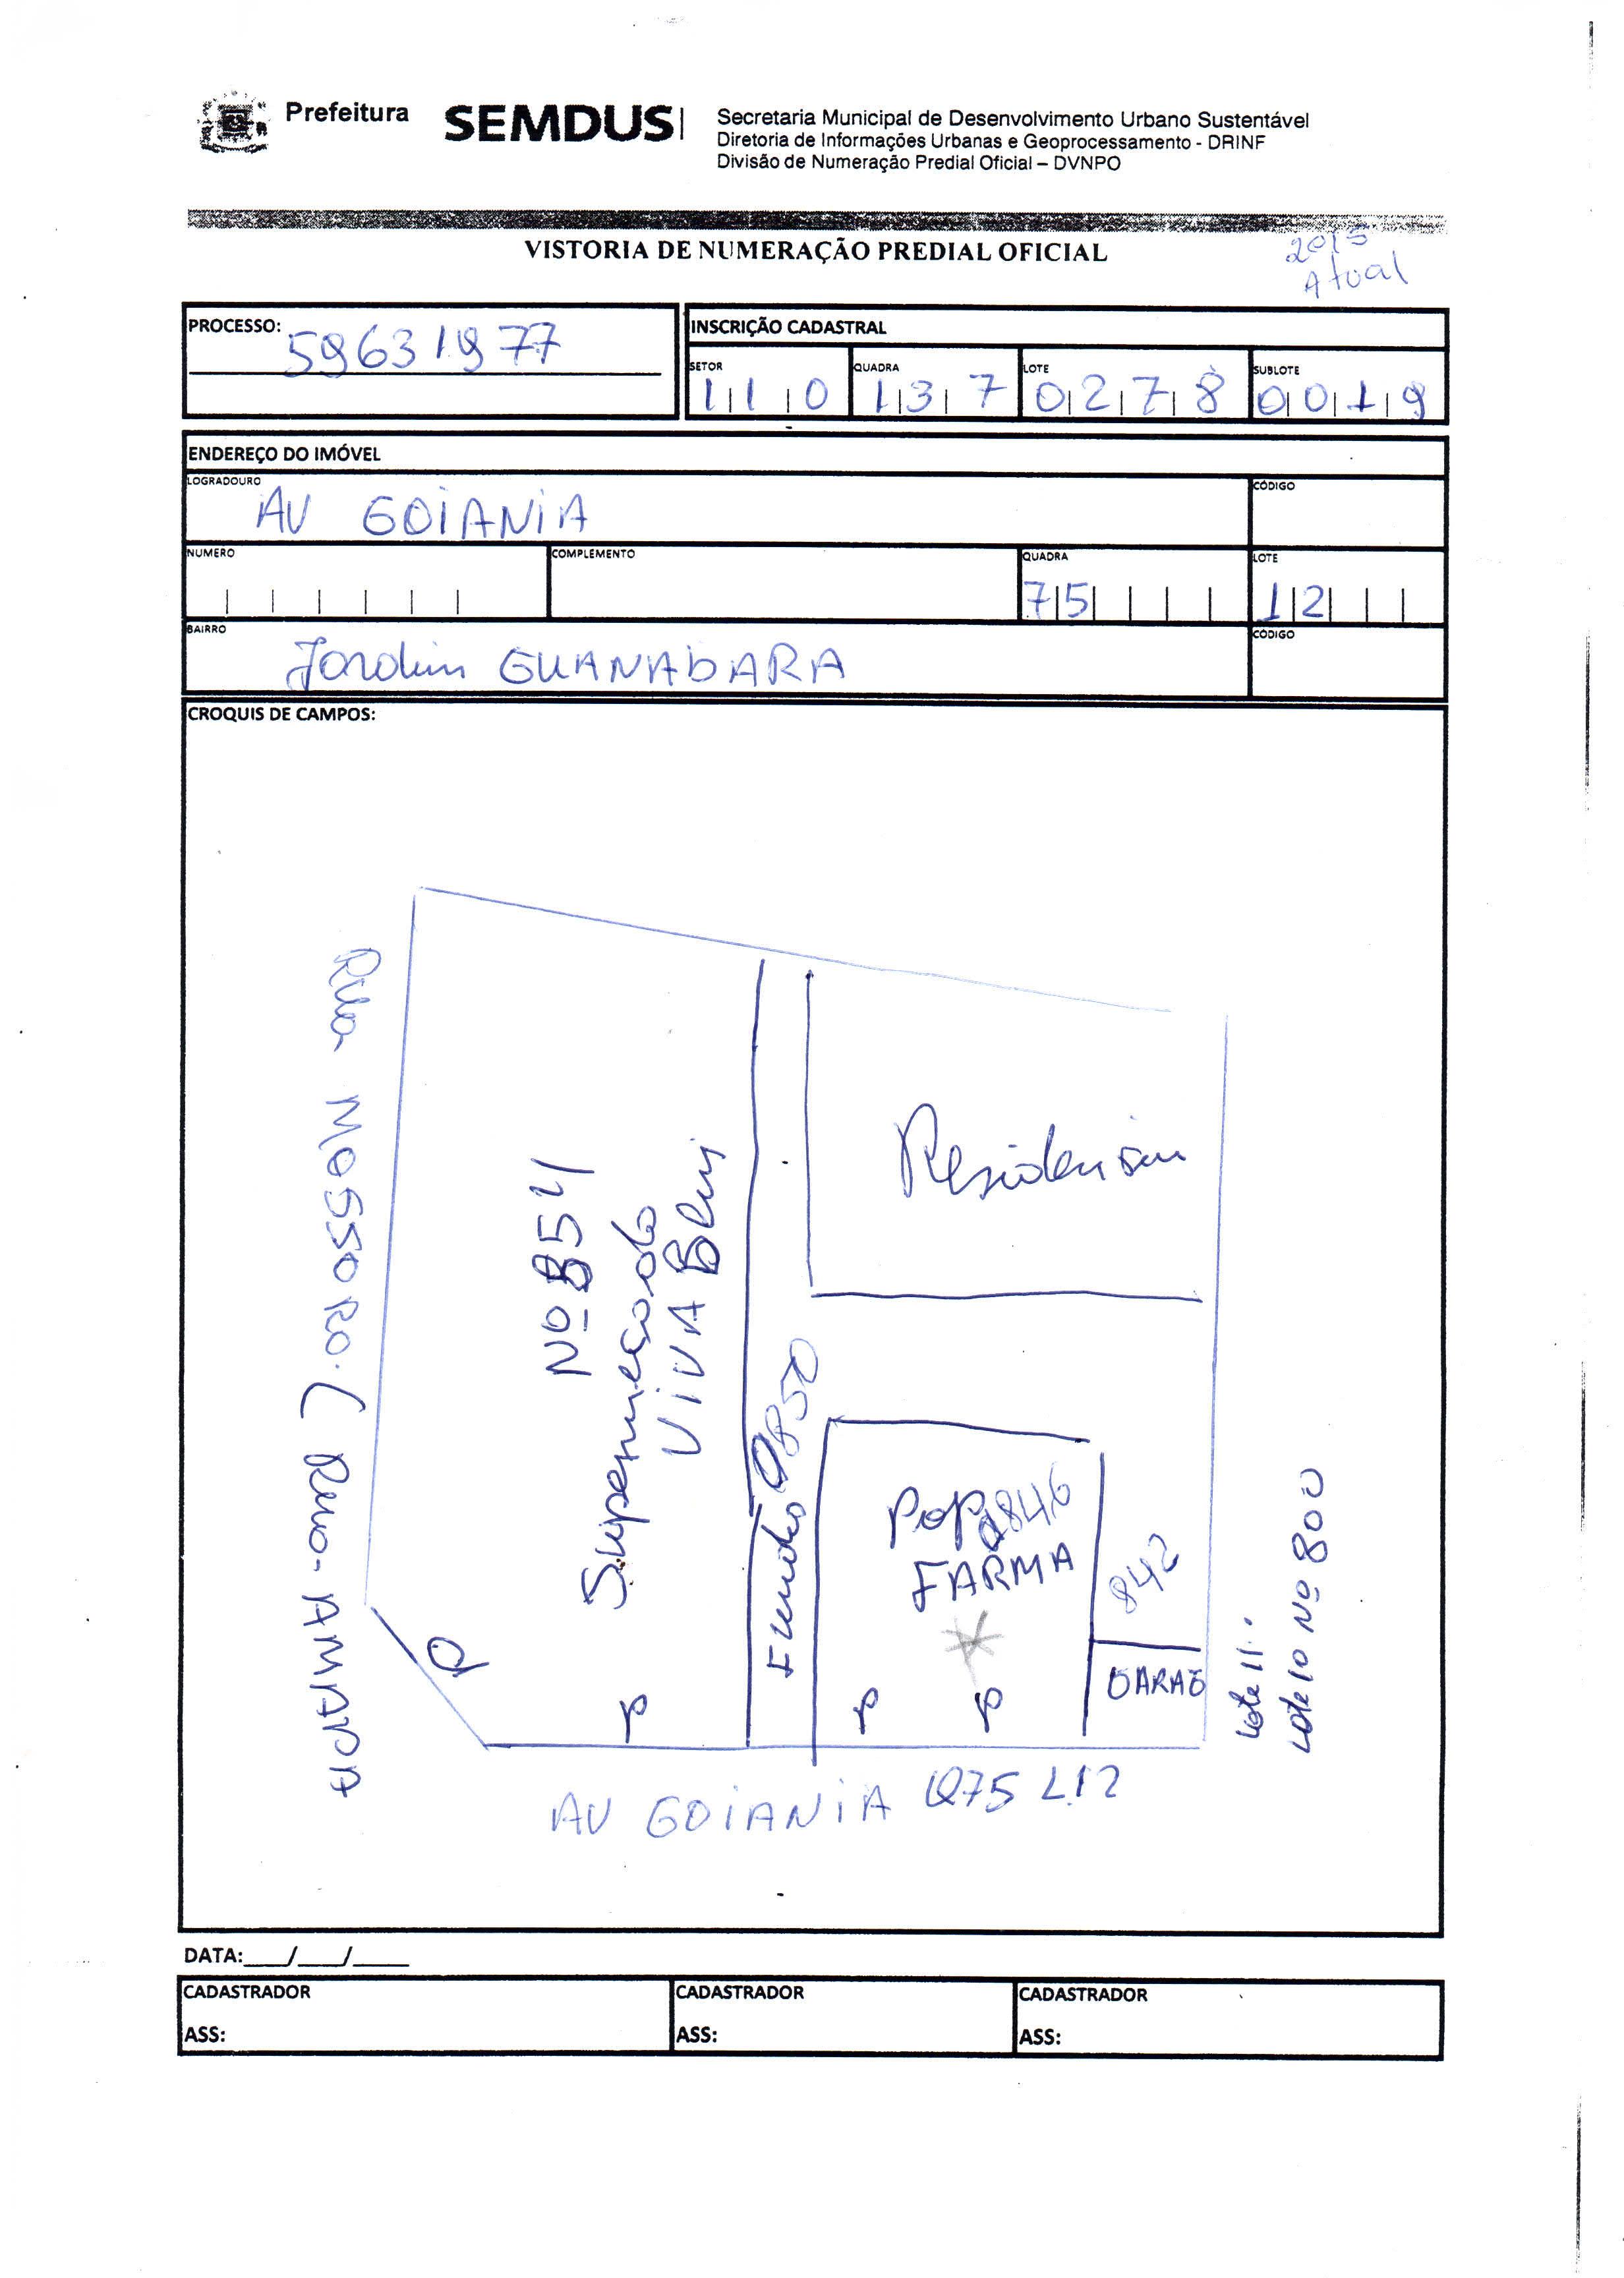 Prefeitura
SEMDUS
Secretaria Municipal de Desenvolvimento Urbano Sustentável
Diretoria de Informações Urbanas e Geoprocessamento - DRINF
Divisão de Numeração Predial Oficial – DVNPO
VISTORIA DE NUMERAÇÃO PREDIAL OFICIAL
2015
Atual
PROCESSO: 59631977
INSCRIÇÃO CADASTRAL
SETOR 110
QUADRA 137
LOTE 0278
SUBLOTE 0019
ENDEREÇO DO IMÓVEL
LOGRADOURO AV GOIANIA
CÓDIGO
NUMERO
COMPLEMENTO
QUADRA 75
LOTE 12
BAIRRO Jardim GUANABARA
CÓDIGO
CROQUIS DE CAMPOS:
Rua MOSSORO.
Nº 854
Supermercado
VIVA
Fundo
850
POP
846
FARMA
842
Lote 11
Lote 10 Nº 800
AV GOIANIA Q75 L12
DATA:___/___/____
CADASTRADOR
ASS:
CADASTRADOR
ASS:
CADASTRADOR
ASS: